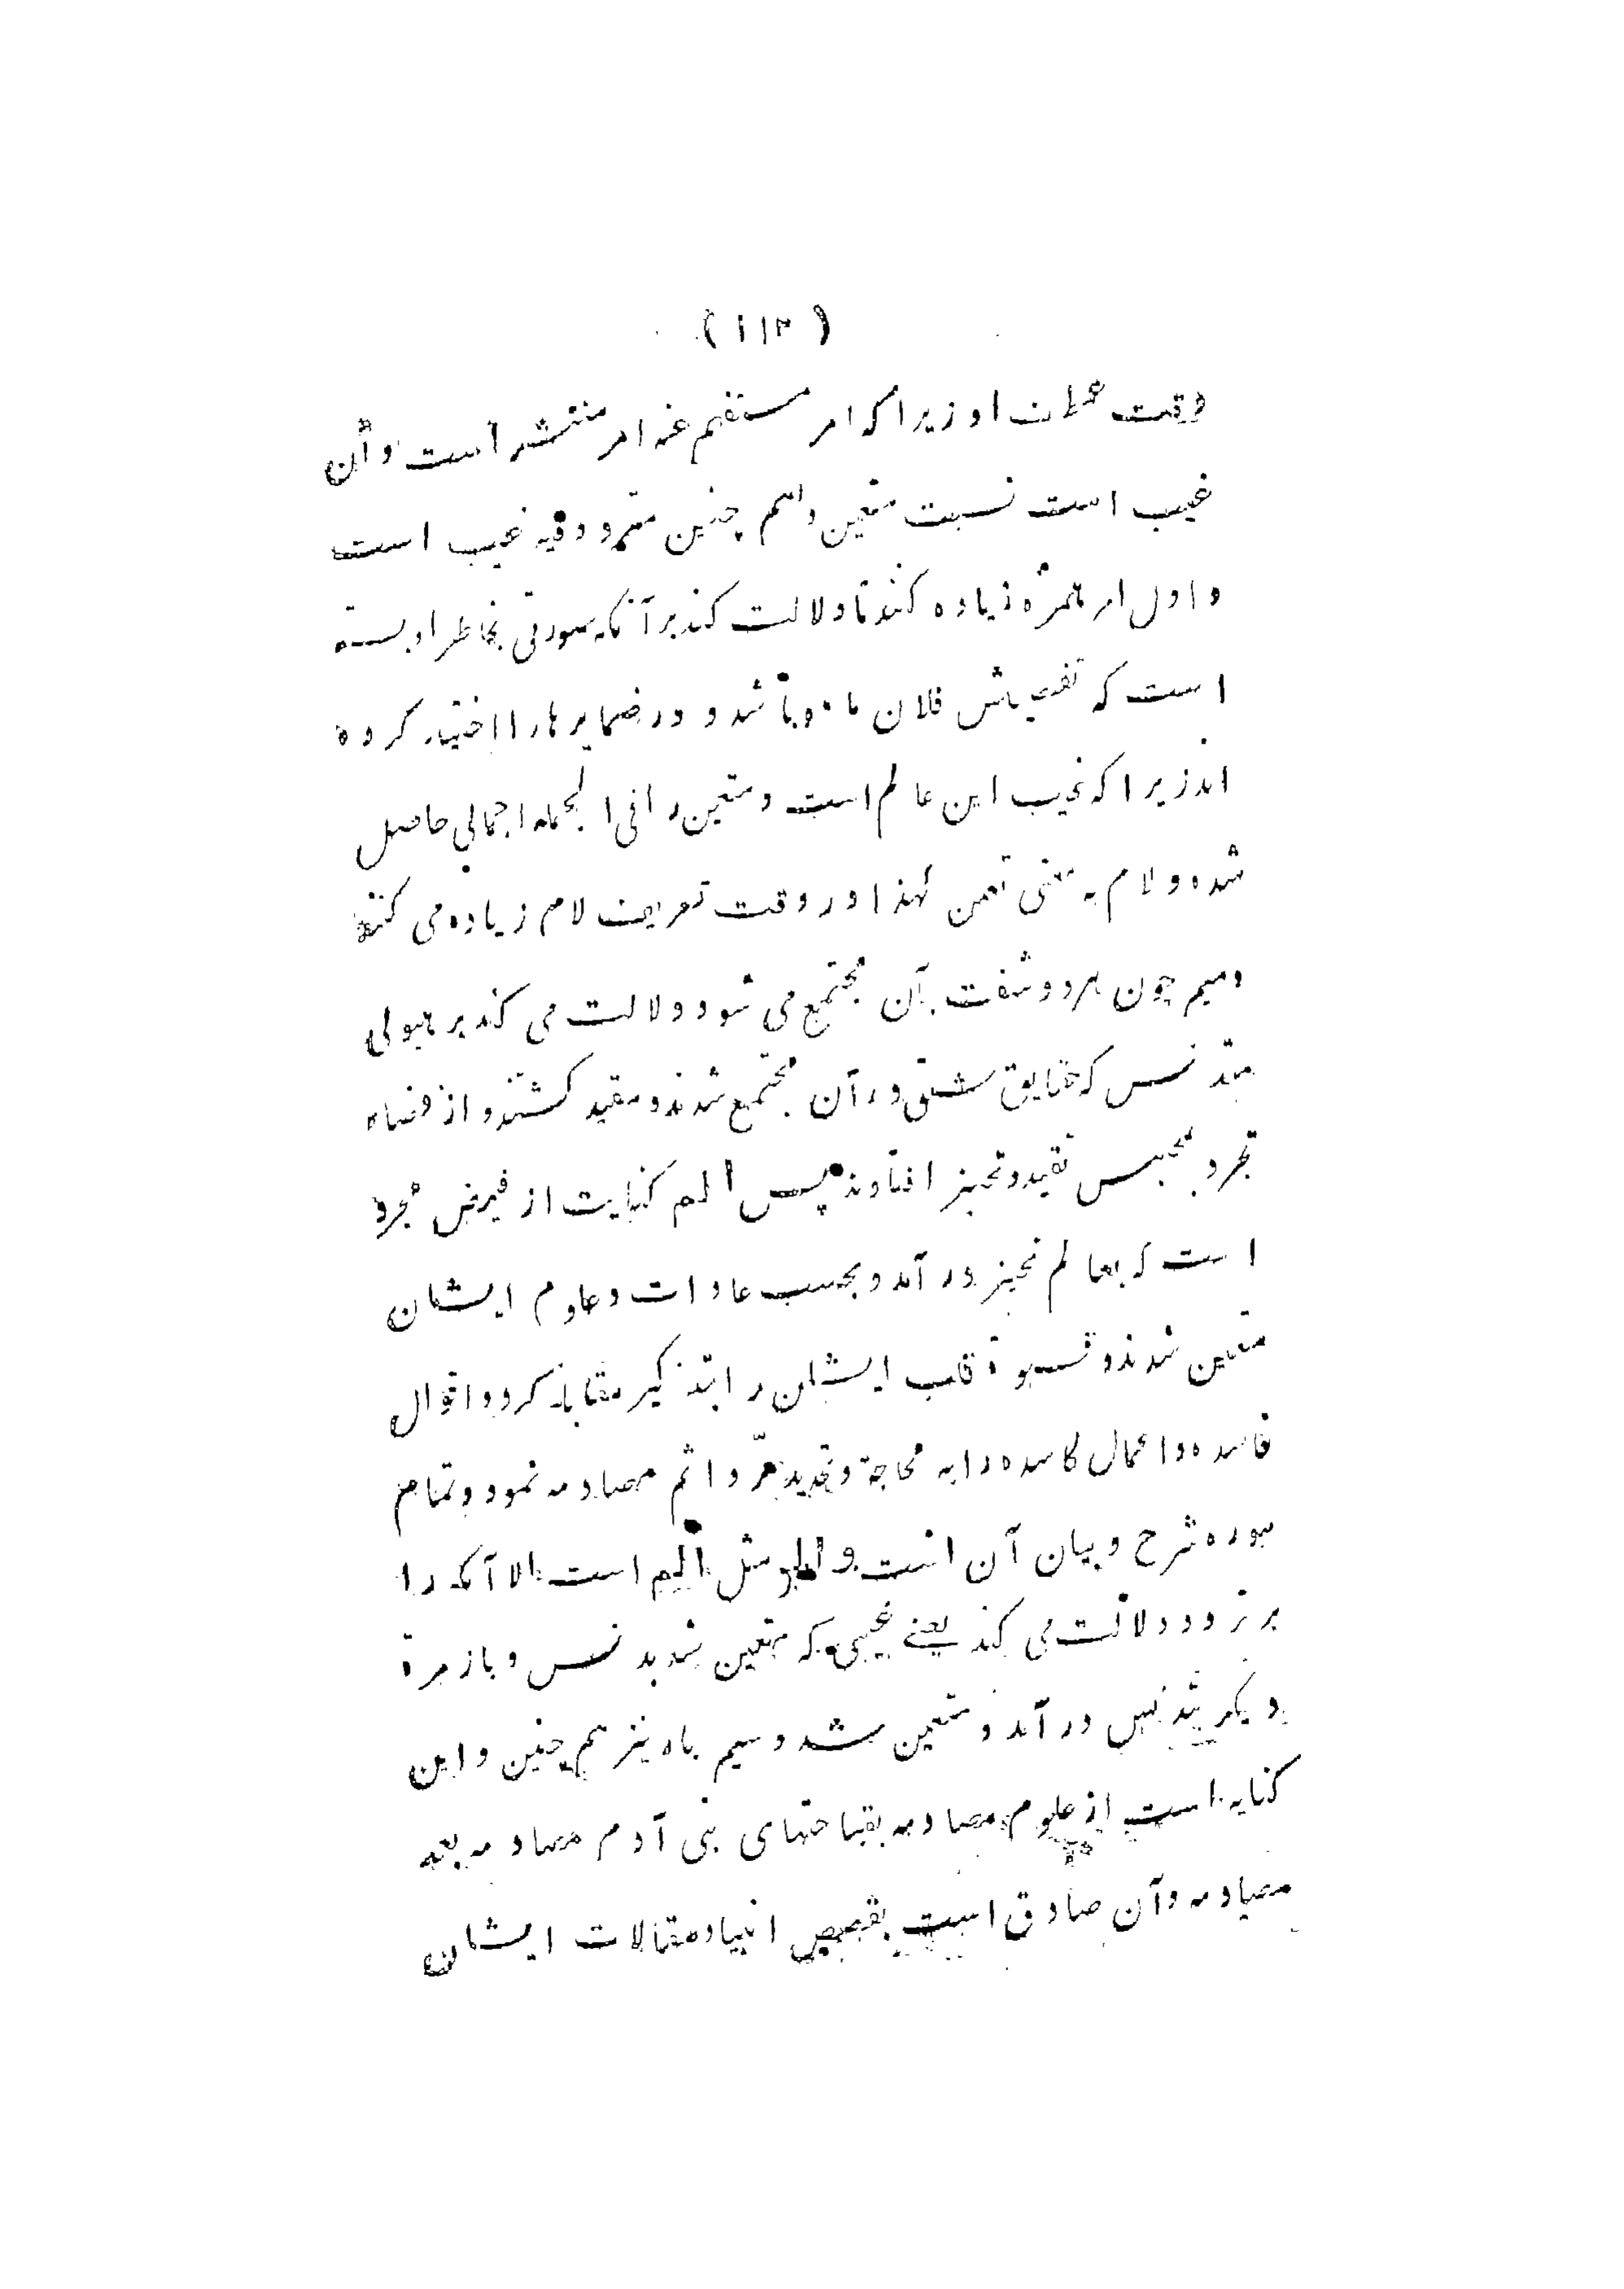 (۱۱۳)
وقت عطف او زیرا که امر مستفهم عنه امر منتشر است و آن
غیب است نسبت متعین و همچنین متردد فیه غیب است
و اول امر همزه زیاده کنند تا دلالت کند بر آنکه صورتی بخاطر او بسته
است که تفصیلش فلان ماده باشد و در ضمایر ها را اختیار کرده
اند زیرا که غیب این عالم است و متعین را فی الجمله اجمالی حاصل
شده و لام به معنی تعین لهذا در وقت تعریف لام زیاده می کنند
و میم چون هر دو شفت بآن مجتمع می شود دلالت می کند بر هیولی
متدنس که حقایق شتی در آن مجتمع شدند و مقید گشتند و از فضاء
تجرد بمحبس تقید و تحیز افتادند پس الم کنایت از فیض مجرد
است که بعالم تحیز در آمد و بحسب عادات و علوم ایشان
متعین شدند و قسوة قلب ایشان را بتذکیر مقابله کرد و اقوال
فاسده و اعمال کاسده را به محاجة و تحدید برّ و اثم مصادمه نمود و تمام
سوره شرح و بیان آن است و المر مثل الم است الا آنکه را
بر تردد دلالت می کند یعنی غیبی که متعین شد بدنس و باز مرة
دیگر بتدنس در آمد و متعین شد و میم باه نیز همچنین و این
کنایه است از علوم مصادمه بقباحتهای بنی آدم مصادمه بعد
مصادمه و آن صادق است بقصص انبیا و مقالات ایشان